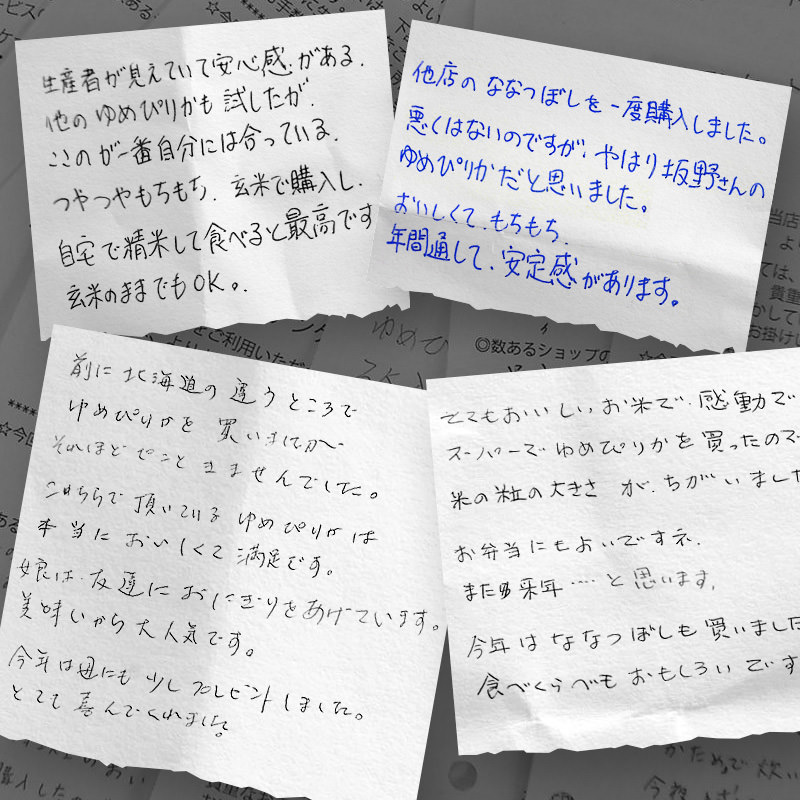 生産者が見えていて安心感がある.
他のゆめぴりかも試したが.
ここのが一番自分には合っている.
つやつやもちもち. 玄米で購入し.
自宅で精米して食べると最高です
玄米のままでもOK。.
他店のななつぼしを一度購入しました。
悪くはないのですが、やはり坂野さんの
ゆめぴりかだと思いました。
おいしくて.もちもち.
年間通して、安定感があります。
前に北海道の違うところで
ゆめぴりかを買いましたが
それほどピンときませんでした。
こちらで頂いているゆめぴりかは
本当においしくて満足です。
娘は.友達におにぎりをあげています。
美味いから大人気です。
今年は母にも少しプレゼントしました。
とても喜んでくれました
とてもおいしいお米で.感動で
スーパーでゆめぴりかを買ったので
米の粒の大きさが.ちがいました
お弁当にもよいですネ.
また来年‥‥と思います.
今年はななつぼしも買いました
食べくらべもおもしろいです